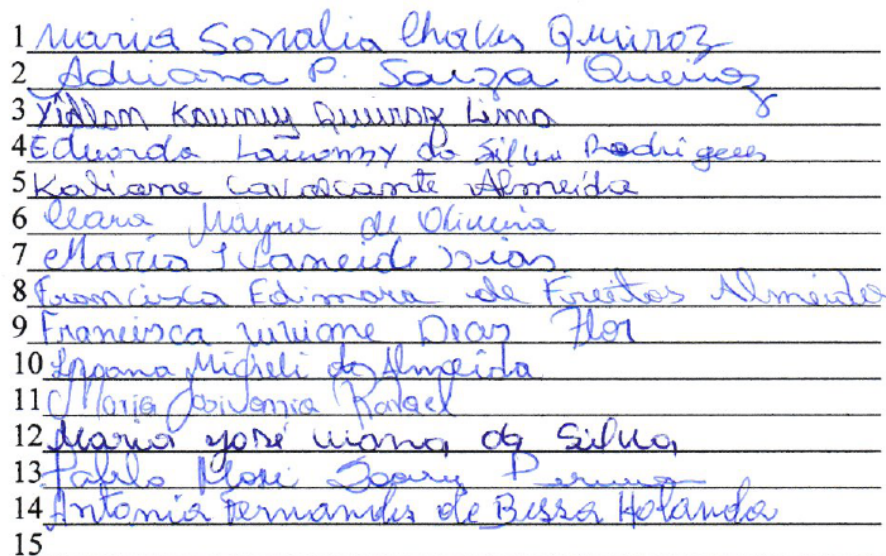 1 Maria Sonalia Chaves Queiroz
2 Adriana P. Souza Queiroz
3 Queiroz Lima
4 Eduarda da Silva Rodrigues
5 Kaliane Cavalcante Almeida
6 Clara Mayra de Oliveira
7 Maria Ivaneide Dias
8 Francisca Edimara de Freitas Almeida
9 Francisca Viviane Dias Flor
10 Micheli de Almeida
11 Maria Josivania Rafael
12 Maria José Viana da Silva
13 Pablo
14 Antonia Fernandes de Bessa Holanda
15